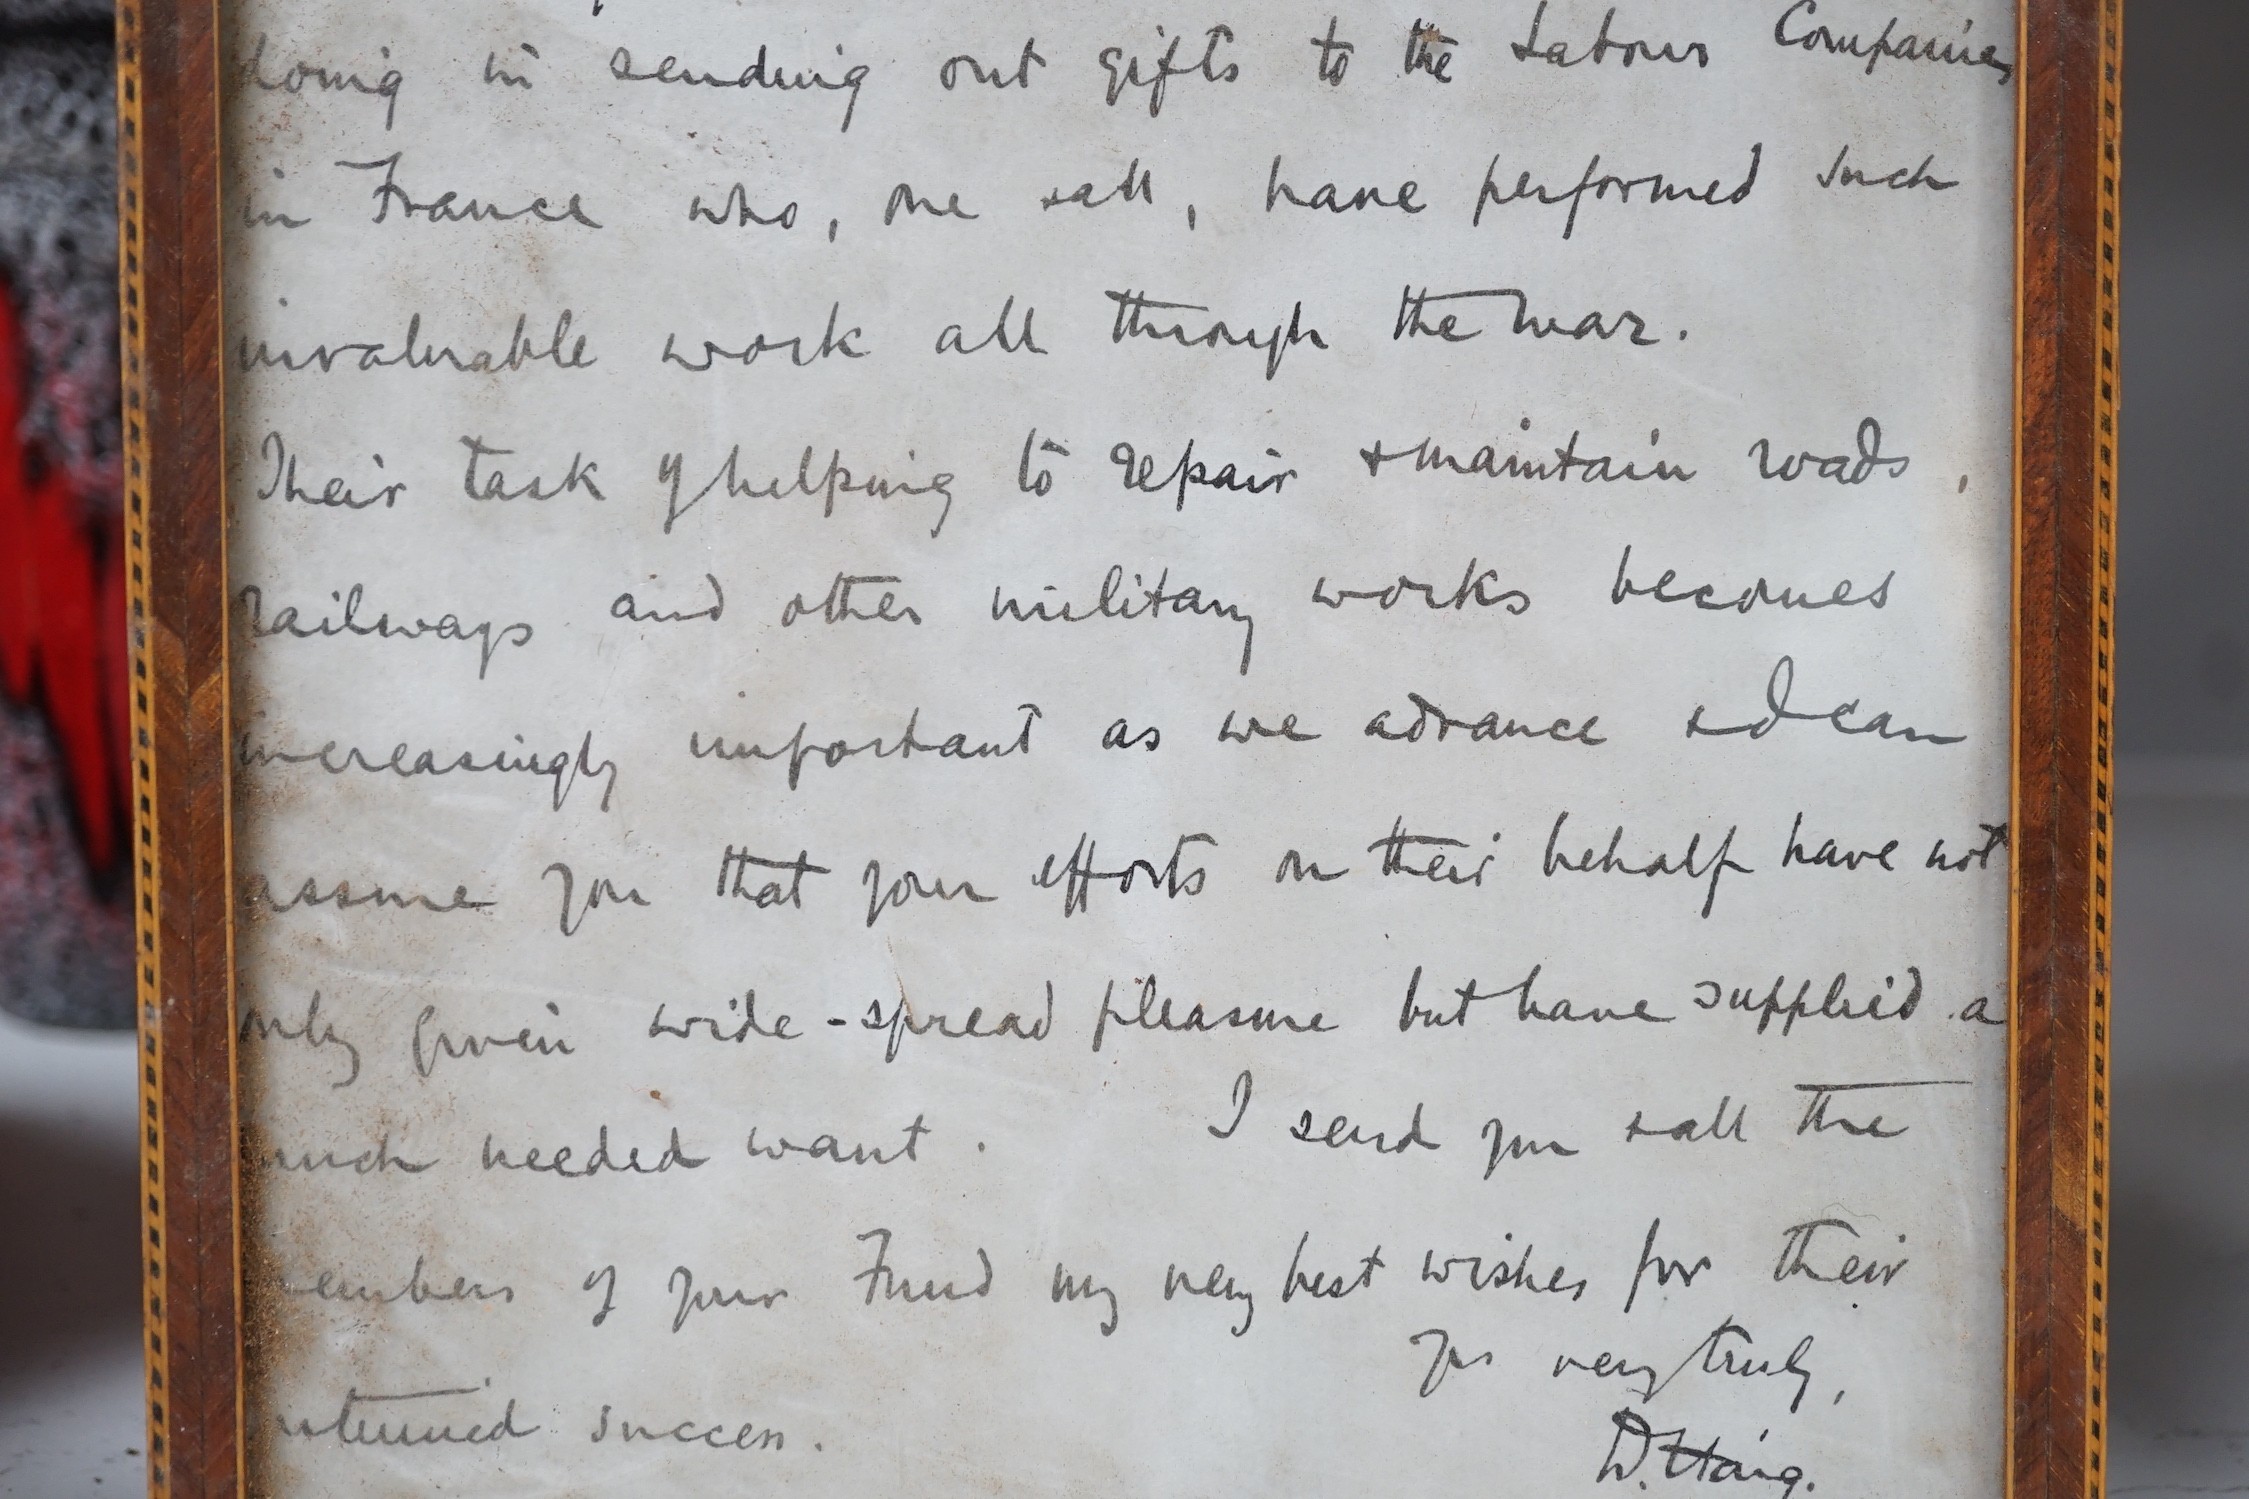 doing in sending out gifts to the Labour Companies
in France who, one & all, have performed such
invaluable work all through the war.
Their task of helping to repair & maintain roads,
railways and other military works becomes
increasingly important as we advance & I can
assure you that your efforts on their behalf have not
only given wide-spread pleasure but have supplied a
much needed want. I send you & all the
members of your Fund my very best wishes for their
continued success.
Yrs very truly,
D. Haig.